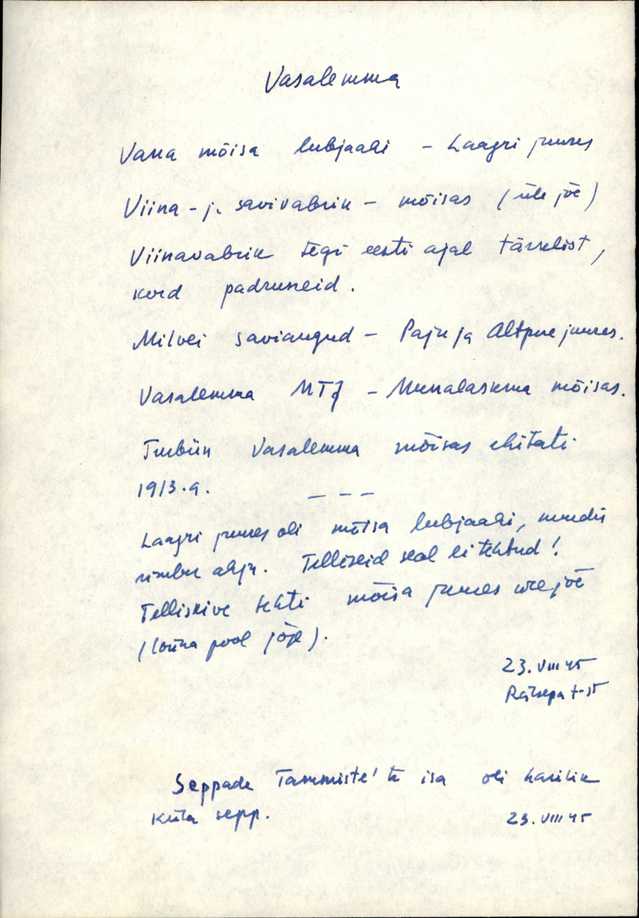 Vasalemma
Vana mõisa lubjaahi - Laagri juures
Viina- j. savivabrik - mõisas (üle jõe)
Viinavabrik tegi eesti ajal tärelist,
kord padruneid.
saviaugud - Paju ja juures.
Vasalemma MTJ - Munalaskma mõisas.
Turbiin Vasalemma mõisas ehitati
1913.a.
---
Laagri juures oli mõisa lubjaahi,
ahju. Telliseid seal ei tehtud!
Telliskive tehti mõisa juures
(lõuna pool jõge).
23.VIII 45
Rätsepa t-st
Seppade Tammiste'te isa oli harilik
küla sepp.
23.VIII 45